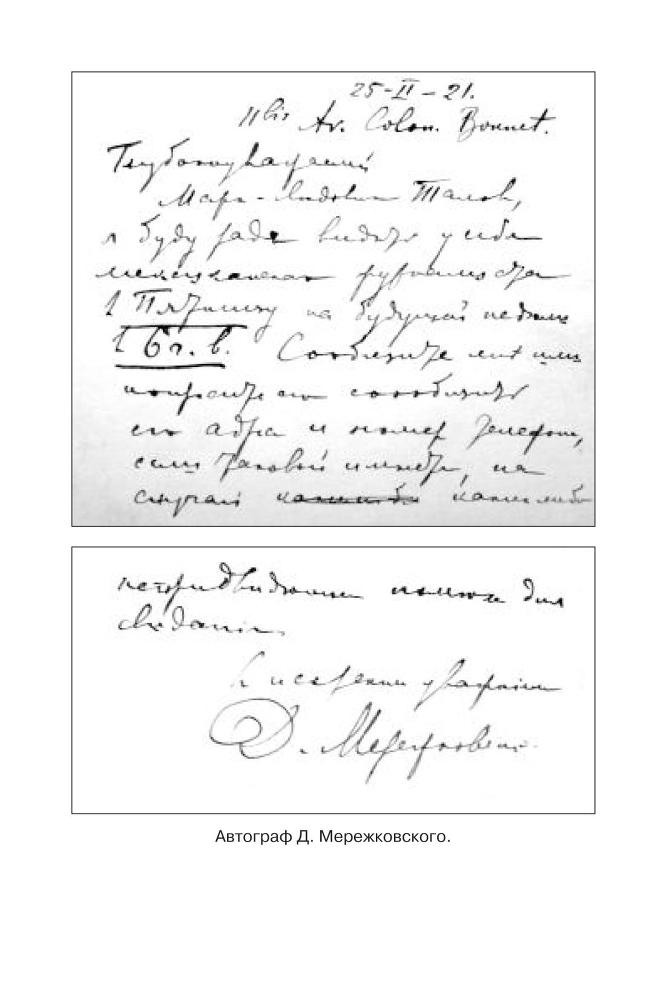 25-II-21.
11bis Av. Colon. Bonnet.
Глубокоуважаемый
Марк-Людович Талов,
я буду рад видеть у себя
мексиканская журналиста
в Пятницу на будущей неделе
в 6 ч. в. Сообщите мне или
попросите его сообщить
его адрес и номер телефона,
если таковой имеется, на
случай какой-либо
непредвиденной помехи для
свидания.
С искренним уважением
Д. Мережковский.
Автограф Д. Мережковского.